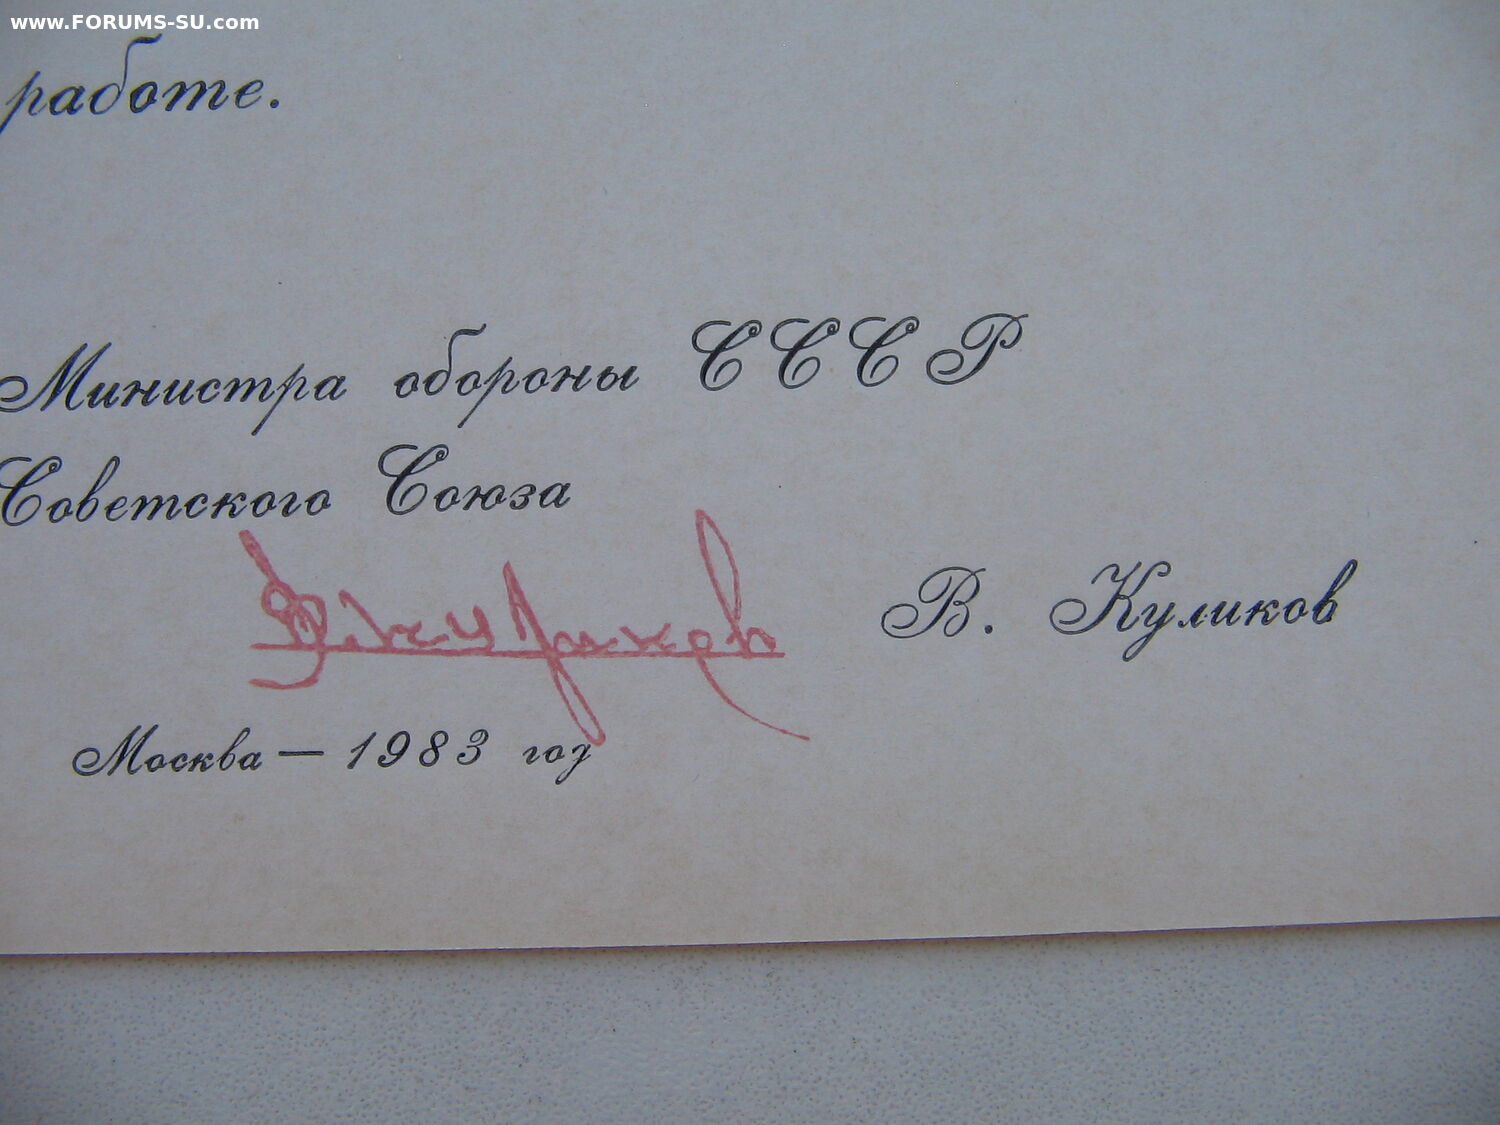 www.FORUMS-SU.com
работе.
Министра обороны СССР
Советского Союза
В. Куликов
Москва — 1983 год